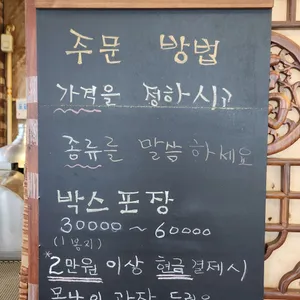 주문 방법
가격을 정하시고
종류를 말씀하세요
박스포장
30000 ~ 60000
(1봉지)
*2만원 이상 현금결제시